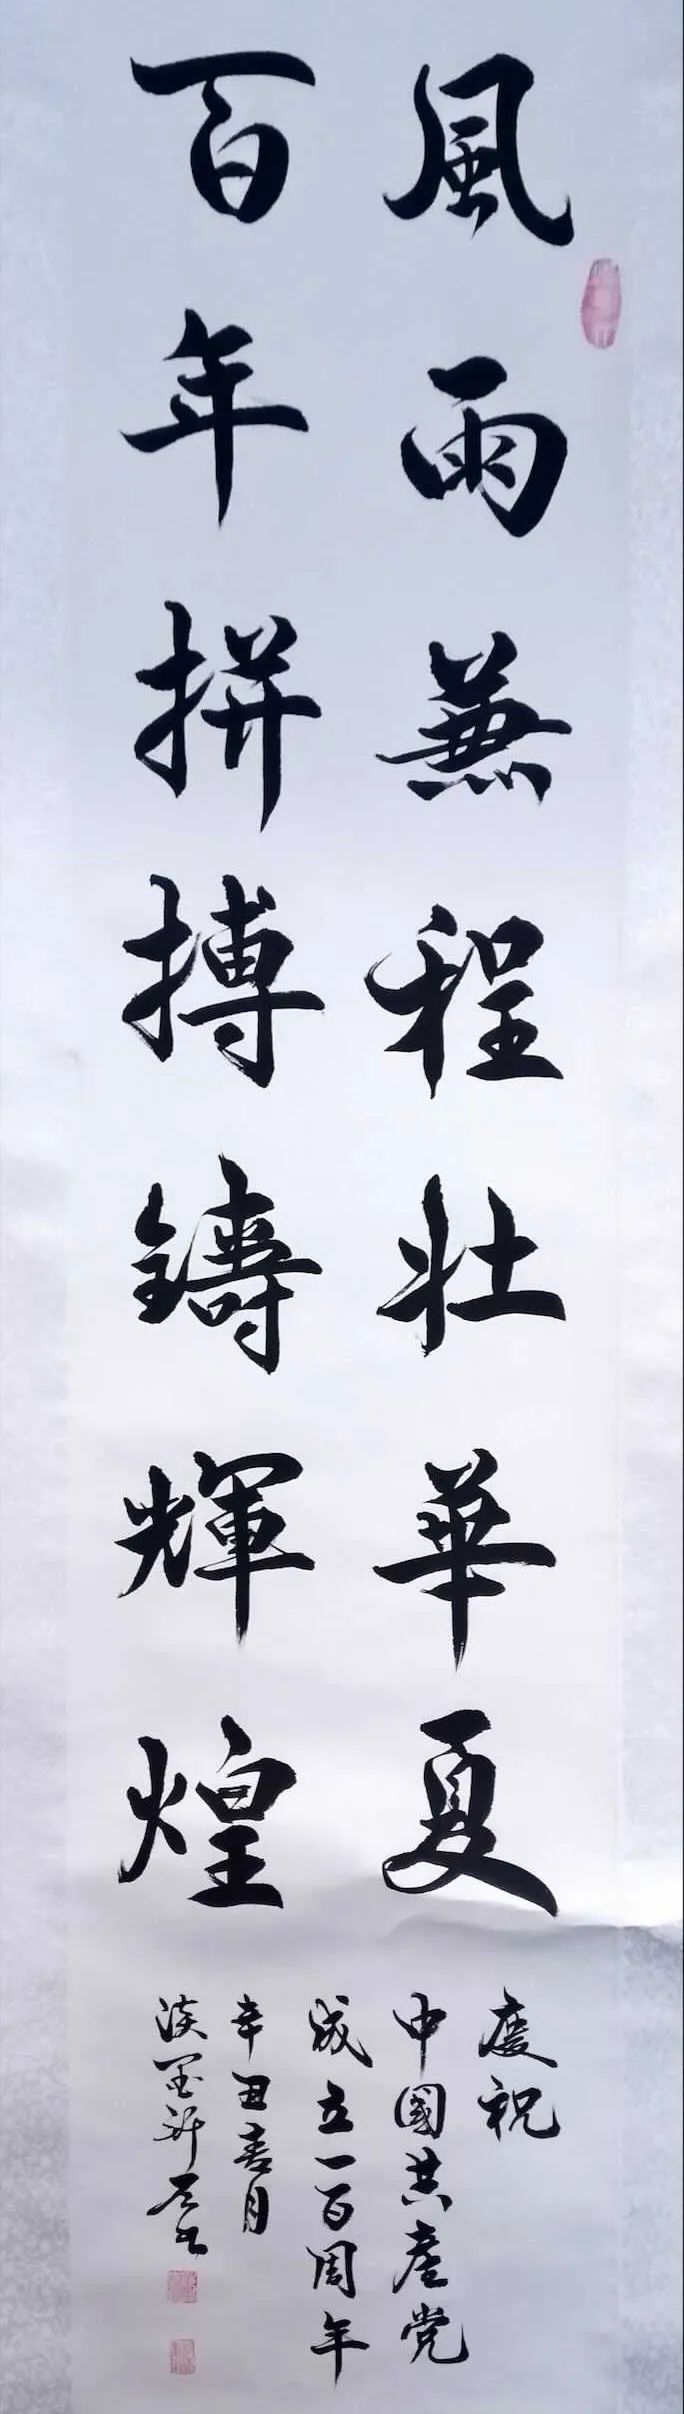 風雨兼程壮華夏
百年拼搏鑄輝煌
慶祝
中國共産党
成立一百周年
辛丑春月
淡墨軒